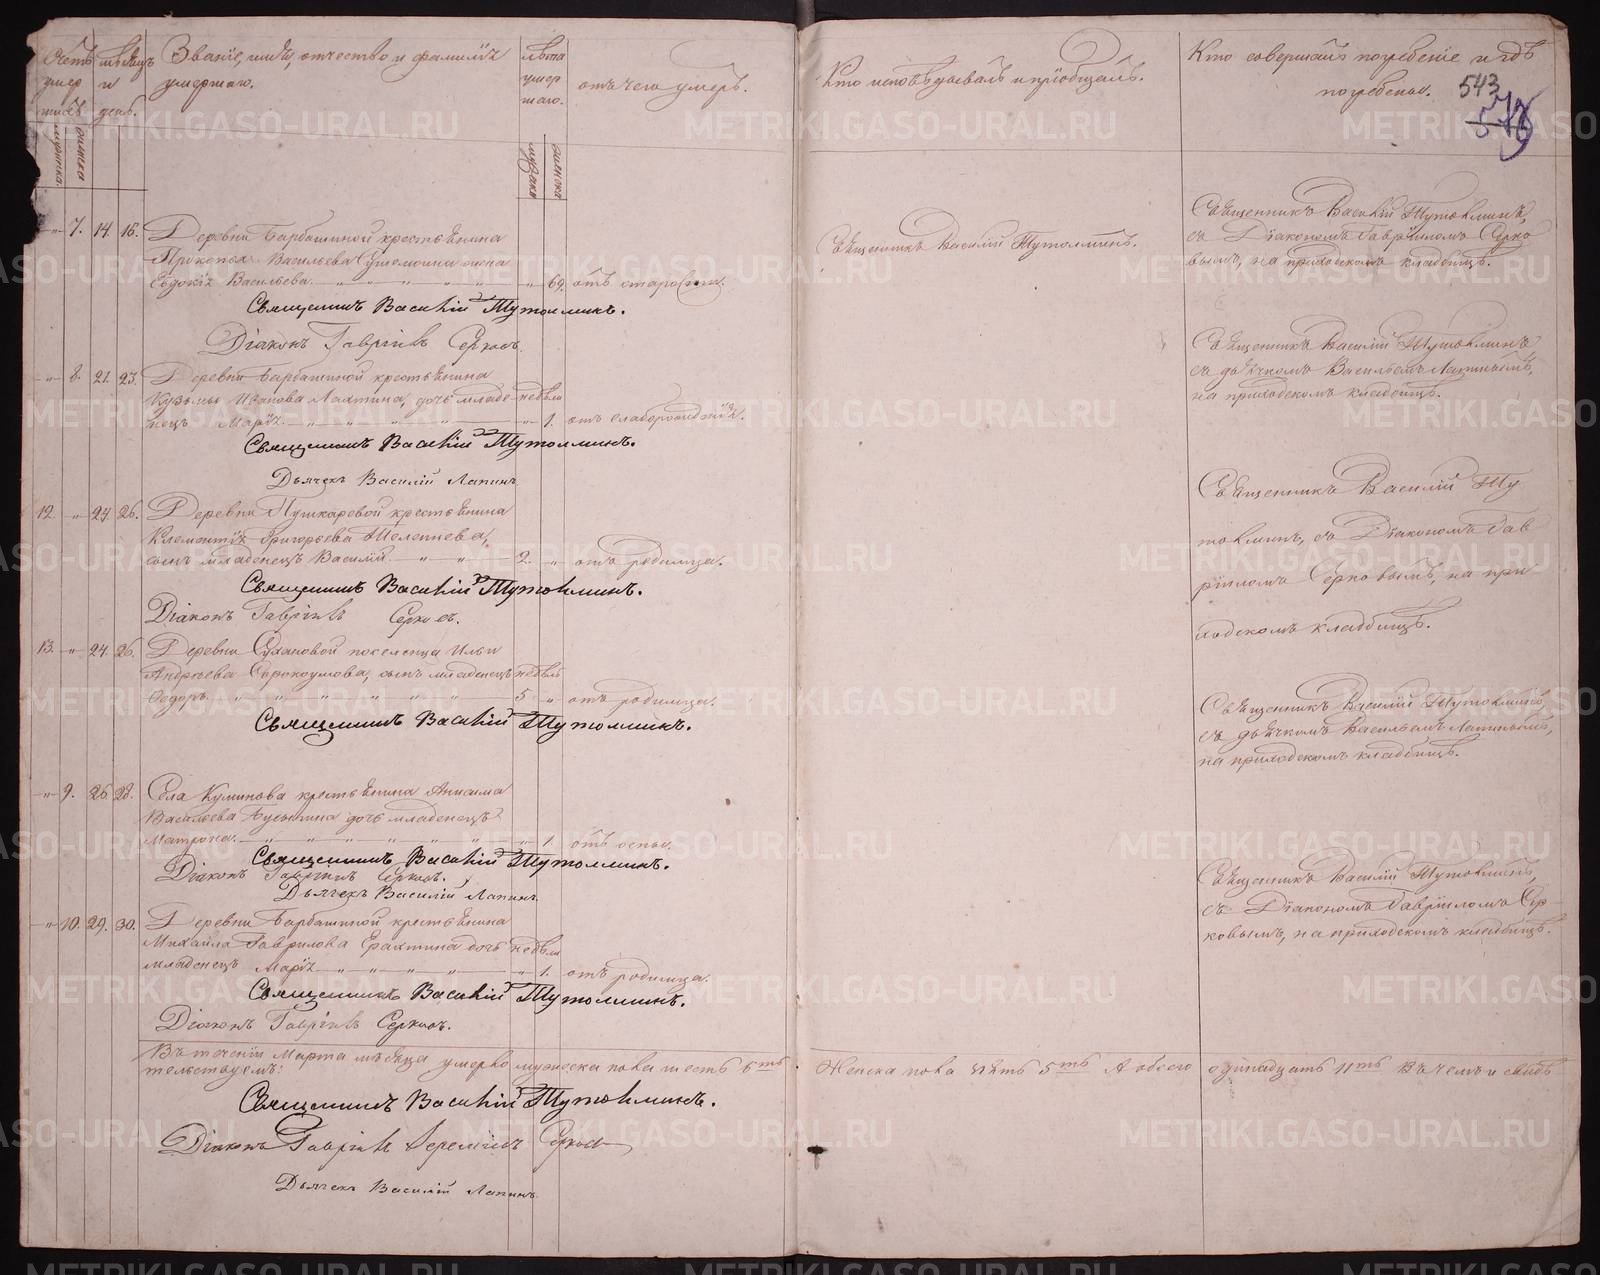 Счетъ умершихъ
мужеска
женска
мѣсяцъ и день.
Званіе, имя, отчество и фамилія
умершаго.
лѣта умершаго.
мужеска
женска
отъ чего умеръ.
Кто исповѣдывалъ и пріобщалъ.
Кто совершалъ погребеніе и гдѣ
погребены.
543
„ 7. 14. 16. Деревни Барбашиной крестьянина
Прокопья Васильева жена
Евдокія Васильева. „ 69. отъ старости.
Священникъ Василій Тутолминъ.
Священникъ Василій Тутолминъ,
съ Діакономъ Гавріиломъ Серко
вымъ, на приходскомъ кладбищѣ.
Священникъ Василій Тутолминъ.
Діаконъ Гавріилъ Серковъ.
„ 8. 21. 23. Деревни Барбашиной крестьянина
Кузьмы Иванова дочь младе- недѣли
нецъ Марія. „ 1. отъ слаборожденія.
Священникъ Василій Тутолминъ
съ дьячкомъ Васильемъ Лапинымъ,
на приходскомъ кладбищѣ.
Священникъ Василій Тутолминъ.
Дьячекъ Василій Лапинъ
12. „ 24. 26. Деревни Пушкаревой крестьянина
Климентія Григорьева
сынъ младенецъ Василій 2. „ отъ родимца.
Священникъ Василій Ту
толминъ, съ Діакономъ Гав
ріиломъ Серковымъ, на при
ходскомъ кладбищѣ.
Священникъ Василій Тутолминъ.
Діаконъ Гавріилъ Серковъ.
13. „ 24. 26. Деревни поселенца Ильи
Андреева сынъ младенецъ недѣль
Ѳедоръ. 5 „ отъ родимца.
Священникъ Василій Тутолминъ,
съ дьячкомъ Васильемъ Лапинымъ,
на приходскомъ кладбищѣ.
Священникъ Василій Тутолминъ.
„ 9. 26. 28. Села Куминова крестьянина Анисима
Васильева дочь младенецъ
Матрона. „ 1. отъ оспы.
Священникъ Василій Тутолминъ.
Діаконъ Гавріилъ Серковъ.
Дьячекъ Василій Лапинъ.
Священникъ Василій Тутолминъ,
съ Діакономъ Гавріиломъ Сер-
ковымъ, на приходскомъ кладбищѣ.
„ 10. 29. 30. Деревни Барбашиной крестьянина
Михайла Гаврилова дочь недѣли
младенецъ Марія „ 1. отъ родимца.
Священникъ Василій Тутолминъ.
Діаконъ Гавріилъ Серковъ.
Въ теченіи Марта мѣсяца умерло мужеска пола шесть 6ть Женска пола пять 5ть А обоего одинадцать 11ть Въ чемъ и свидѣ
тельствуемъ:
Священникъ Василій Тутолминъ.
Діаконъ Гавріилъ Серковъ
Дьячекъ Василій Лапинъ
METRIKI.GASO-URAL.RU